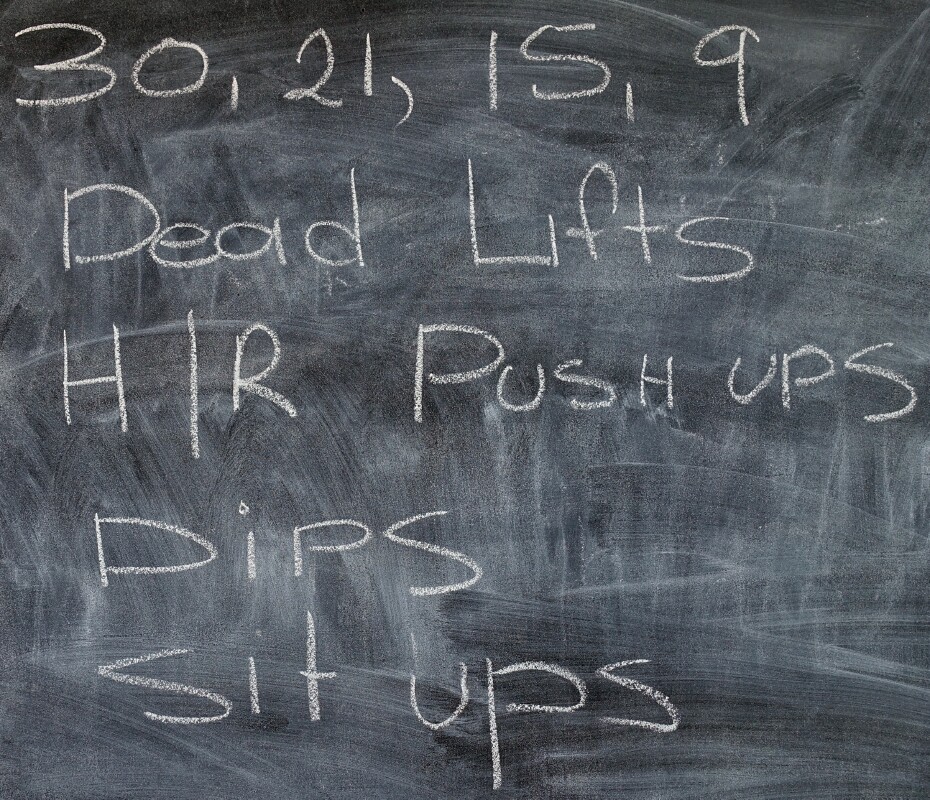 30, 21, 15, 9
Dead Lifts
H|R Push ups
Dips
Sit ups